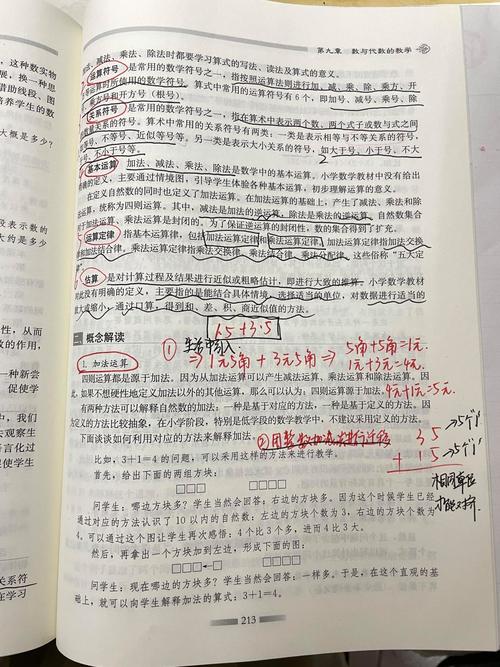 第九章 数与代数的教学
加法、减法、乘法、除法时都要学习算式的写法、读法及算式的意义。
运算符号是常用的数学符号之一，指按照运算法则进行加、减、乘、除、乘方、开
方等运算时所使用的数学符号。算式中常用的运算符号有6个，即加号、减号、乘号、除
号、乘方号和开方号（根号）。
关系符号是常用的数学符号之一，指在算术中表示两个数、两个式子或数与式之间
数量关系的符号。算术中常用的关系符号有两类：一类是表示相等与不等关系的符号，
等号、不等号、近似等号等。另一类是表示大小关系的符号，如大于号、小于号、不大
于号、不小于号等。
2
基本运算 加法、减法、乘法、除法是数学中的基本运算。小学数学教材中没有给出
明确的定义，主要通过情境图，引导学生体验各种基本运算，初步理解运算的意义。
在定义自然数的同时也定义了加法运算。在加法运算的基础上，产生了减法、乘法和除
法运算，统称为四则运算。其中，减法是加法的逆运算，除法是乘法的逆运算，自然数集合
对于加法运算、乘法运算是封闭的。为了保证逆运算的封闭性，数的集合得到了扩充。
运算定律 指基本运算定律，包括加法运算定律和乘法运算定律。加法运算定律指加法交换
律和加法结合律。乘法运算定律指乘法交换律、乘法结合律、乘法分配律。这些俗称“五大定
律”。
估算 是对计算过程及结果进行近似或粗略估计，即进行大致的推算。小学数学教材
对此没有明确的定义，主要指的是能结合具体情境，选择适当的单位，对数据进行适当的
放大或缩小，通过口算，得到和、差、积、商近似值的方法。
1.5+3.5
二、概念解读
① 生活中引入
⇒ 1元5角 + 3元5角 ⇒ 5角+5角=1元.
1元+3元=4元.
4元+1元=5元.
1. 加法运算
四则运算都是源于加法。因为从加法运算可以产生减法运算、乘法运算和除法运算。因
此，如果不想硬性地定义加法以外的其他运算，那么可以认为：四则运算源于加法。
有两种方法可以解释自然数的加法：一种是基于对应的方法，一种是基于定义的方法。因
为定义的方法比较抽象，在小学阶段，特别是低学段的数学教学中，不建议采用定义的方法。
下面谈谈如何利用对应的方法来解释加法：
② 用整数加法进行迁移
3 5 → 5个
+ 1 5 → 5个
相同单位
才能对齐
比如，3+1=4的问题，可以采用这样的方法来进行教学。
首先，给出下面的两组方块：
问学生：哪边方块多？学生当然会回答，右边的方块多。因为这个时候学生已经
通过对应的方法认识了10以内的自然数：左边的方块个数为3，右边的方块个数为
4，可以通过这个图让学生再次感悟：4个比3个多，进而4比3大。
然后，再拿出一个方块加到左边，形成下面的图：
问学生：现在哪边的方块多？学生当然会回答：一样多。于是，在这个直观的基
础上，就可以向学生解释加法的算式：3+1=4。
213